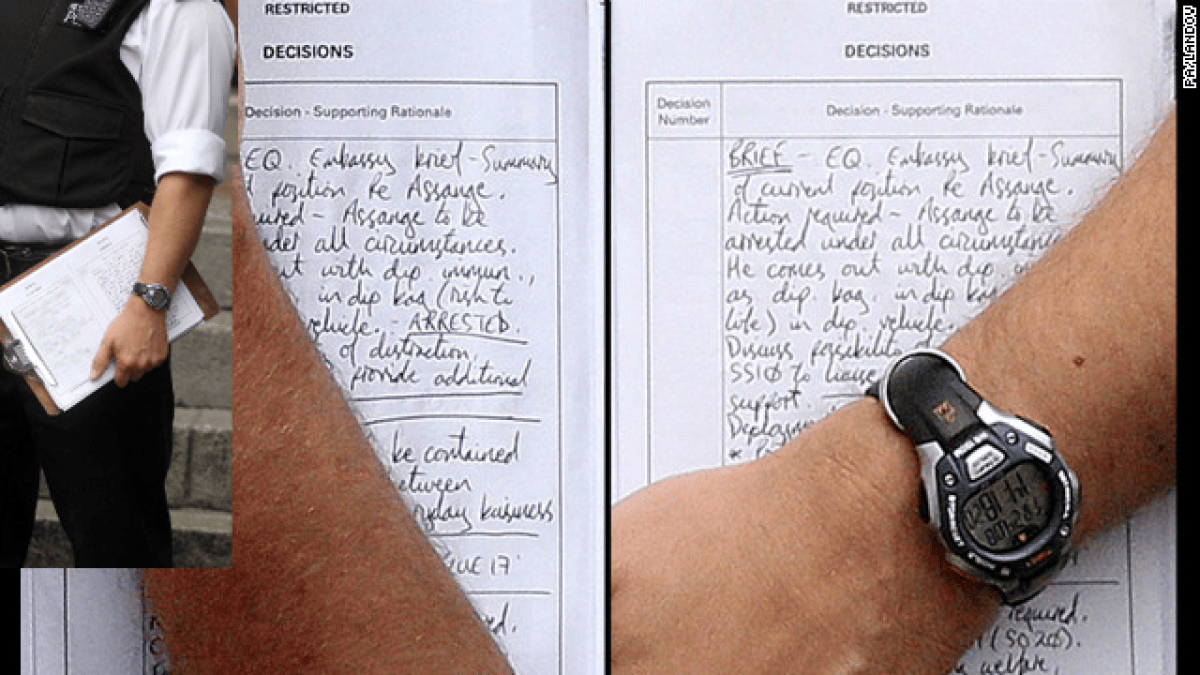 RESTRICTED
DECISIONS
Decision - Supporting Rationale
EQ. Embassy brief - Summary
position re Assange.
- Assange to be
all circumstances.
with dip. immun.,
in dip bag (risk to
vehicle. - ARRESTED.
of distinction,
provide additional
be contained
between
business
17
RESTRICTED
DECISIONS
Decision
Number
Decision - Supporting Rationale
BRIEF - EQ. Embassy brief - Summary
of current position re Assange.
Action required - Assange to be
arrested under all circumstances
He comes out with dip.
as dip. bag. in dip
life) in dip. vehicle.
Discuss possibility
SS10 to liaise
support.
*
required.
(SO20).
welfare,
PA/LANDOV